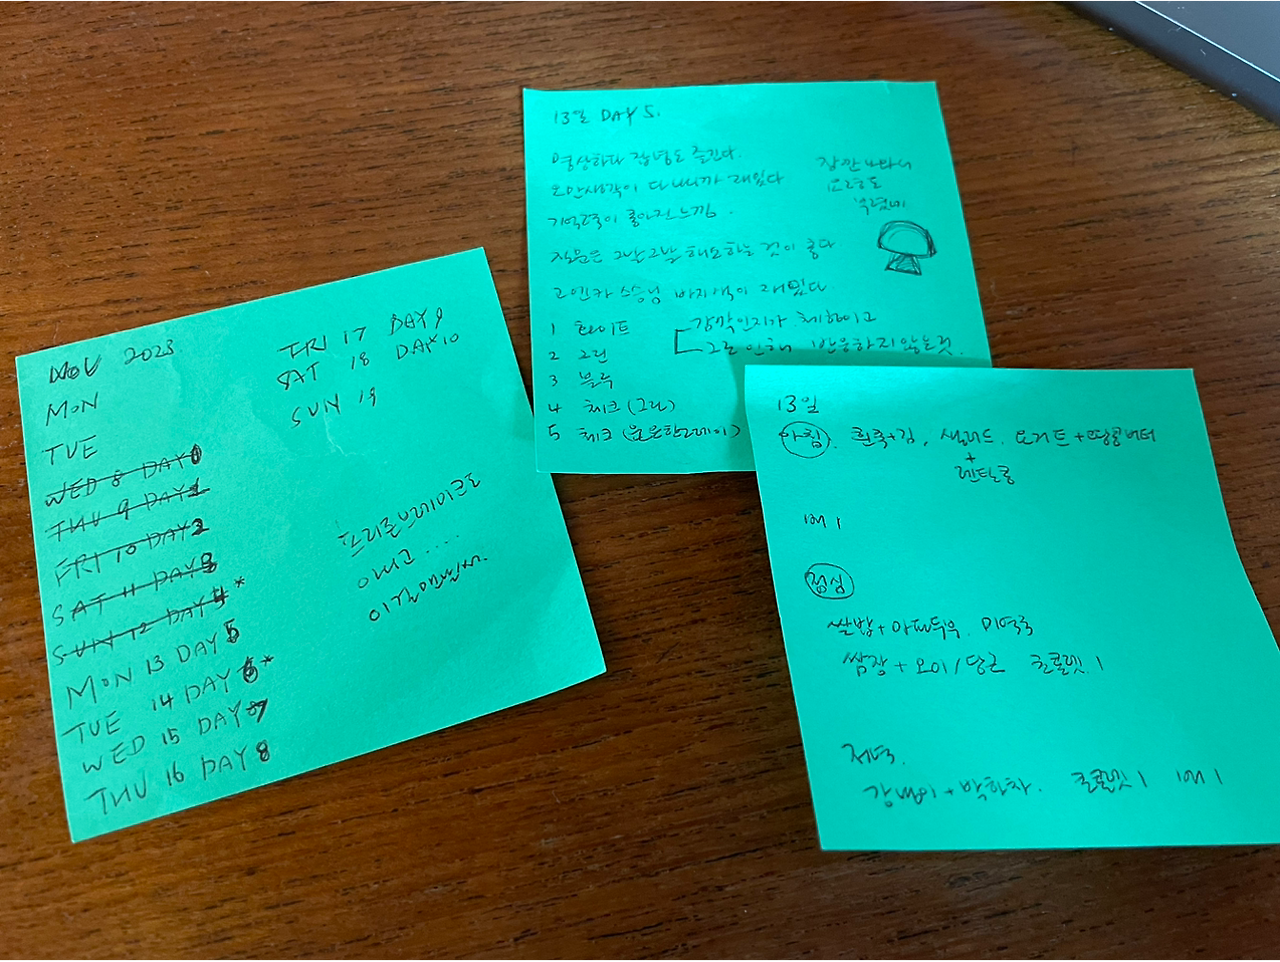 NOV 2023.
MON
TUE
WED 8 DAY 0
THU 9 DAY 1
FRI 10 DAY 2
SAT 11 DAY 3
SUN 12 DAY 4 *
MON 13 DAY 5
TUE 14 DAY 6 *
WED 15 DAY 7
THU 16 DAY 8
FRI 17 DAY 9
SAT 18 DAY 10
SUN 19
프리존브레이크도
아니고 ....
이걸 매일써.
13일 DAY 5.
명상하다 잡념도 즐긴다.
오만생각이 다 나니까 재밌다
기억력이 좋아진 느낌.
질문은 그날그날 해소하는 것이 좋다
고엔카 스승님 바지색이 재밌다
1 화이트
2 그린
3 블루
4 체크 (그린)
5 체크 (은은한그레이)
감각인지가 체험이고
그로 인해 반응하지 않는것.
잠깐
부렸네
13일
아침. 흰죽+김, 샐러드, 요거트+땅콩버터
+
렌틸콩
점심
쌀밥+ 미역국
쌈장 + 오이/당근 초콜렛 1
저녁.
강냉이 + 박하차. 초콜렛 1